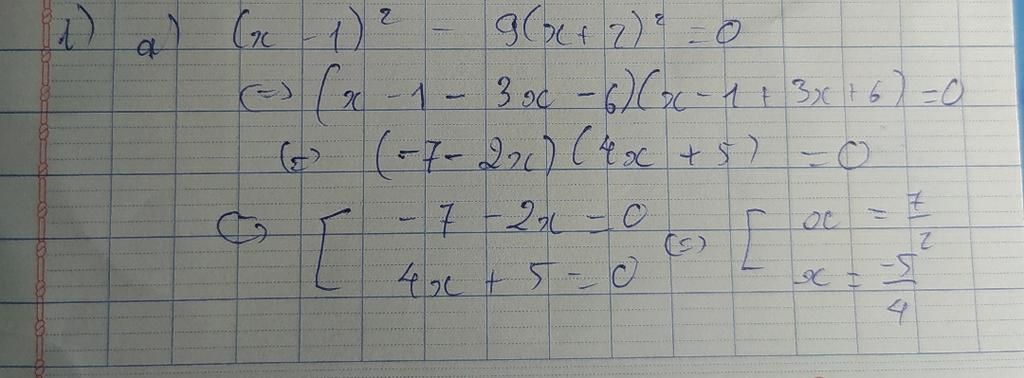 1) a) (x - 1)² - 9(x + 2)² = 0
<=> (x - 1 - 3x - 6)(x - 1 + 3x + 6) = 0
<=> (-7 - 2x)(4x + 5) = 0
<=> [ -7 - 2x = 0 <=> [ x = 7/2
4x + 5 = 0 x = -5/4